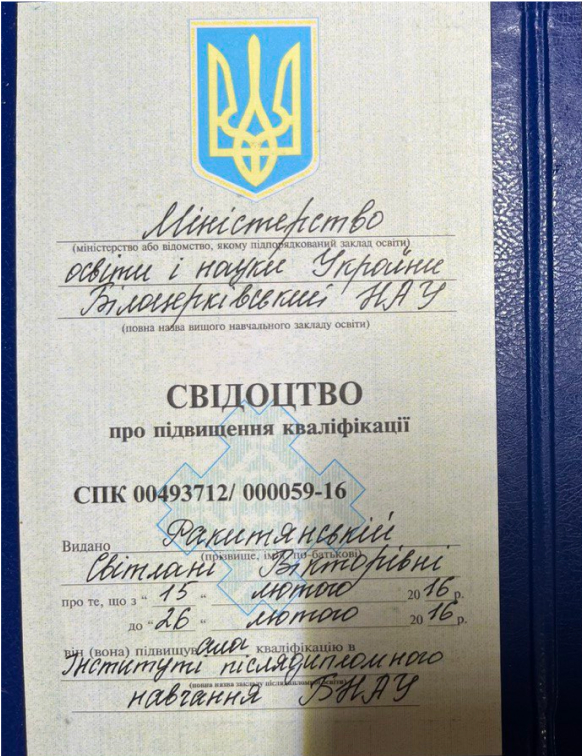 Міністерство
(міністерство або відомство, якому підпорядкований заклад освіти)
освіти і науки України
Білоцерківський НАУ
(повна назва вищого навчального закладу освіти)
СВІДОЦТВО
про підвищення кваліфікації
СПК 00493712/ 000059-16
Видано Ракитянській
(прізвище, ім'я, по-батькові)
Світлані Вікторівні
про те, що з “ 15 “ лютого 2016 р.
до “ 26 “ лютого 2016 р.
він (вона) підвищувала кваліфікацію в
Інституті післядипломного
(повна назва закладу післядипломної освіти)
навчання БНАУ